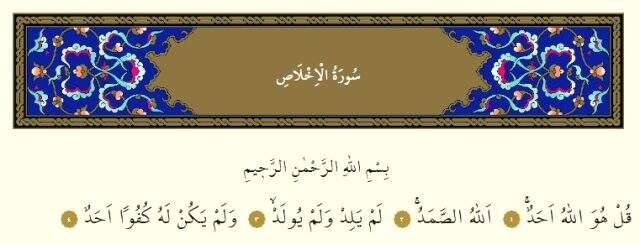 سُورَةُ الْاِخْلَاصِ
بِسْمِ اللهِ الرَّحْمٰنِ الرَّحٖيمِ
قُلْ هُوَ اللهُ اَحَدٌۚ ﴿١﴾ اَللهُ الصَّمَدُۚ ﴿٢﴾ لَمْ يَلِدْ وَلَمْ يُولَدْۙ ﴿٣﴾ وَلَمْ يَكُنْ لَهُ كُفُوًا اَحَدٌ ﴿٤﴾